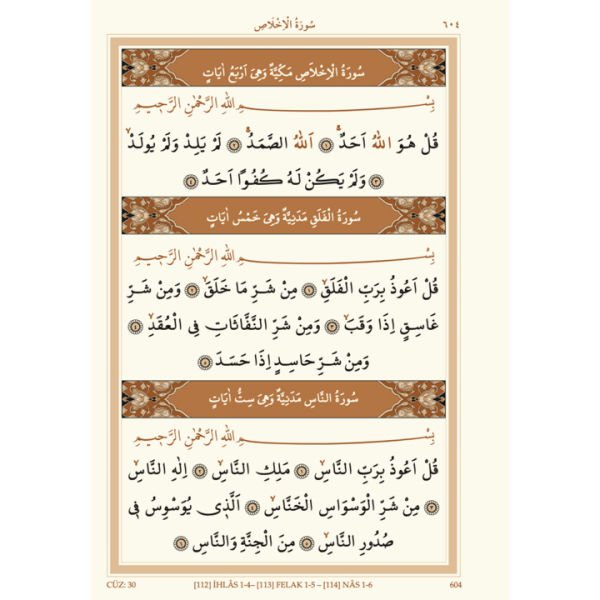 سُورَةُ الْاِخْلَاصِ ٦٠٤
سُورَةُ الْاِخْلَاصِ مَكِّيَّةٌ وَهِيَ اَرْبَعُ اٰيَاتٍ
بِسْمِ اللّٰهِ الرَّحْمٰنِ الرَّحِيمِ
قُلْ هُوَ اللّٰهُ اَحَدٌۚ ﴿١﴾ اَللّٰهُ الصَّمَدُۚ ﴿٢﴾ لَمْ يَلِدْ وَلَمْ يُولَدْۙ
﴿٣﴾ وَلَمْ يَكُنْ لَهُ كُفُوًا اَحَدٌ ﴿٤﴾
سُورَةُ الْفَلَقِ مَدَنِيَّةٌ وَهِيَ خَمْسُ اٰيَاتٍ
بِسْمِ اللّٰهِ الرَّحْمٰنِ الرَّحِيمِ
قُلْ اَعُوذُ بِرَبِّ الْفَلَقِۙ ﴿١﴾ مِنْ شَرِّ مَا خَلَقَۙ ﴿٢﴾ وَمِنْ شَرِّ
غَاسِقٍ اِذَا وَقَبَۙ ﴿٣﴾ وَمِنْ شَرِّ النَّفَّاثَاتِ فِي الْعُقَدِۙ ﴿٤﴾
وَمِنْ شَرِّ حَاسِدٍ اِذَا حَسَدَ ﴿٥﴾
سُورَةُ النَّاسِ مَدَنِيَّةٌ وَهِيَ سِتُّ اٰيَاتٍ
بِسْمِ اللّٰهِ الرَّحْمٰنِ الرَّحِيمِ
قُلْ اَعُوذُ بِرَبِّ النَّاسِۙ ﴿١﴾ مَلِكِ النَّاسِۙ ﴿٢﴾ اِلٰهِ النَّاسِۙ
﴿٣﴾ مِنْ شَرِّ الْوَسْوَاسِ الْخَنَّاسِۙ ﴿٤﴾ اَلَّذِي يُوَسْوِسُ فِي
صُدُورِ النَّاسِۙ ﴿٥﴾ مِنَ الْجِنَّةِ وَالنَّاسِ ﴿٦﴾
CÜZ: 30 [112] İHLÂS 1-4– [113] FELAK 1-5 – [114] NÂS 1-6 604